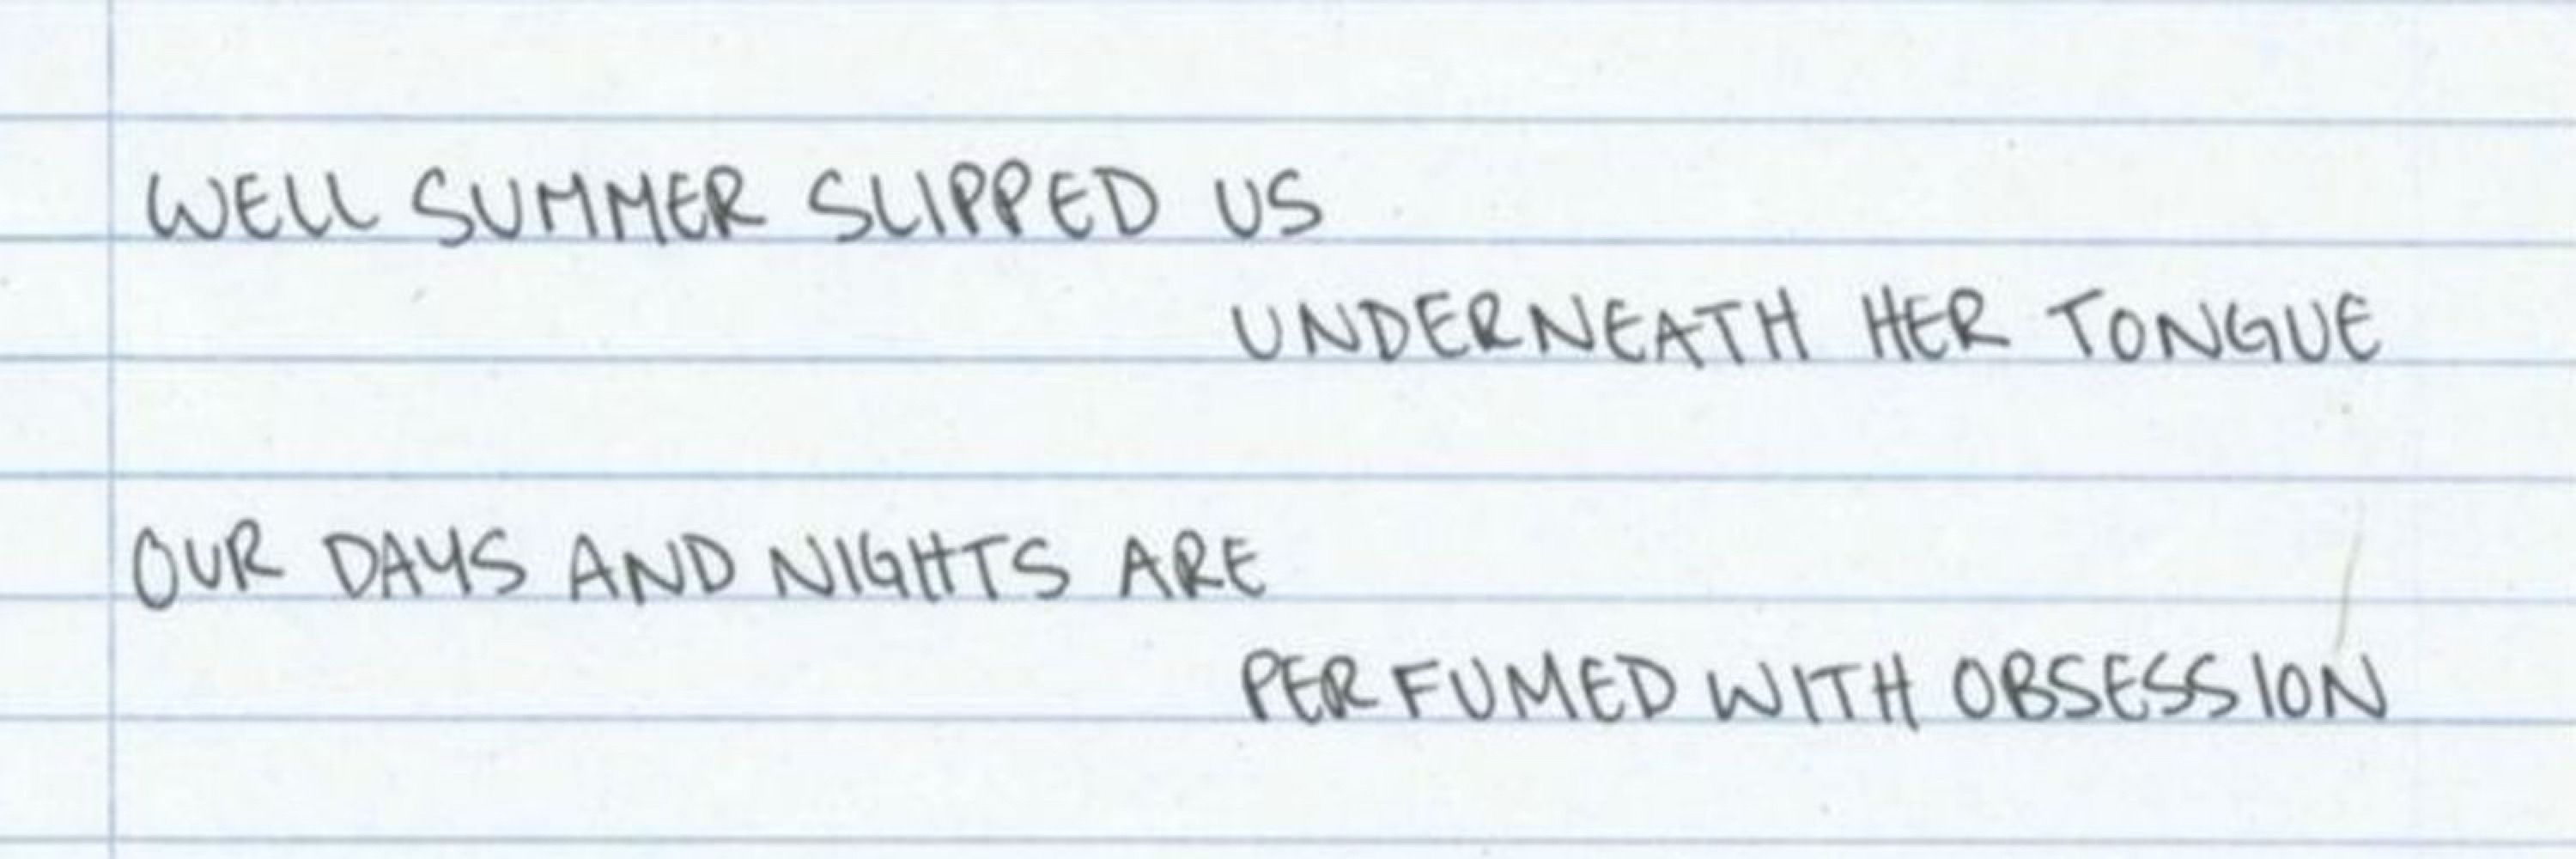 WELL SUMMER SLIPPED US
UNDERNEATH HER TONGUE
OUR DAYS AND NIGHTS ARE
PERFUMED WITH OBSESSION